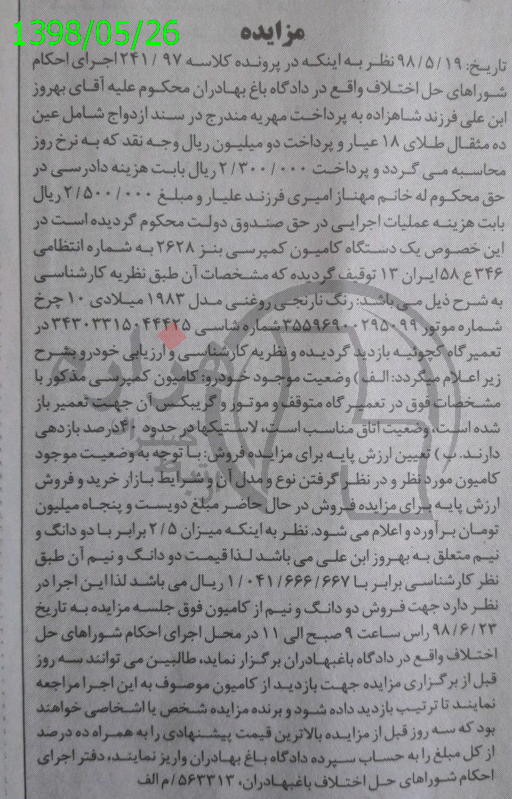 1398/05/26
مزایده
تاریخ: ۹۸/۵/۱۹ نظر به اینکه در پرونده کلاسه ۲۴۱/۹۷ اجرای احکام
شوراهای حل اختلاف واقع در دادگاه باغ بهادران محکوم علیه آقای بهروز
ابن علی فرزند شاهزاده به پرداخت مهریه مندرج در سند ازدواج شامل عین
ده مثقال طلای ۱۸ عیار و پرداخت دو میلیون ریال وجه نقد که به نرخ روز
محاسبه می گردد و پرداخت ۲/۳۰۰/۰۰۰ ریال بابت هزینه دادرسی در
حق محکوم له خانم مهناز امیری فرزند علیار و مبلغ ۲/۵۰۰/۰۰۰ ریال
بابت هزینه عملیات اجرایی در حق صندوق دولت محکوم گردیده است در
این خصوص یک دستگاه کامیون کمپرسی بنز ۲۶۲۸ به شماره انتظامی
۳۴۶ع۵۸ ایران ۱۳ توقیف گردیده که مشخصات آن طبق نظریه کارشناسی
به شرح ذیل می باشد: رنگ نارنجی روغنی مدل ۱۹۸۳ میلادی ۱۰ چرخ
شماره موتور ۳۵۵۹۶۹۰۰۲۹۵۰۹۹ شماره شاسی ۳۴۳۰۳۳۱۵۰۴۴۴۲۵ در
تعمیرگاه کچوئیه بازدید گردیده و نظریه کارشناسی و ارزیابی خودرو بشرح
زیر اعلام میگردد: الف) وضعیت موجود خودرو: کامیون کمپرسی مذکور با
مشخصات فوق در تعمیرگاه متوقف و موتور و گریبکس آن جهت تعمیر باز
شده است، وضعیت اتاق مناسب است، لاستیکها در حدود ۴۰درصد بازدهی
دارند. ب) تعیین ارزش پایه برای مزایده فروش: با توجه به وضعیت موجود
کامیون مورد نظر و در نظر گرفتن نوع و مدل آن و شرایط بازار خرید و فروش
ارزش پایه برای مزایده فروش در حال حاضر مبلغ دویست و پنجاه میلیون
تومان برآورد و اعلام می شود. نظر به اینکه میزان ۲/۵ برابر با دو دانگ و
نیم متعلق به بهروز ابن علی می باشد لذا قیمت دو دانگ و نیم آن طبق
نظر کارشناسی برابر با ۱/۰۴۱/۶۶۶/۶۶۷ ریال می باشد لذا این اجرا در
نظر دارد جهت فروش دو دانگ و نیم از کامیون فوق جلسه مزایده به تاریخ
۹۸/۶/۲۳ راس ساعت ۹ صبح الی ۱۱ در محل اجرای احکام شوراهای حل
اختلاف واقع در دادگاه باغبهادران برگزار نماید، طالبین می توانند سه روز
قبل از برگزاری مزایده جهت بازدید از کامیون موصوف به این اجرا مراجعه
نمایند تا ترتیب بازدید داده شود و برنده مزایده شخص یا اشخاصی خواهند
بود که سه روز قبل از مزایده بالاترین قیمت پیشنهادی را به همراه ده درصد
از کل مبلغ را به حساب سپرده دادگاه باغ بهادران واریز نمایند، دفتر اجرای
احکام شوراهای حل اختلاف باغبهادران، ۵۶۳۳۱۳/م الف
هزاره